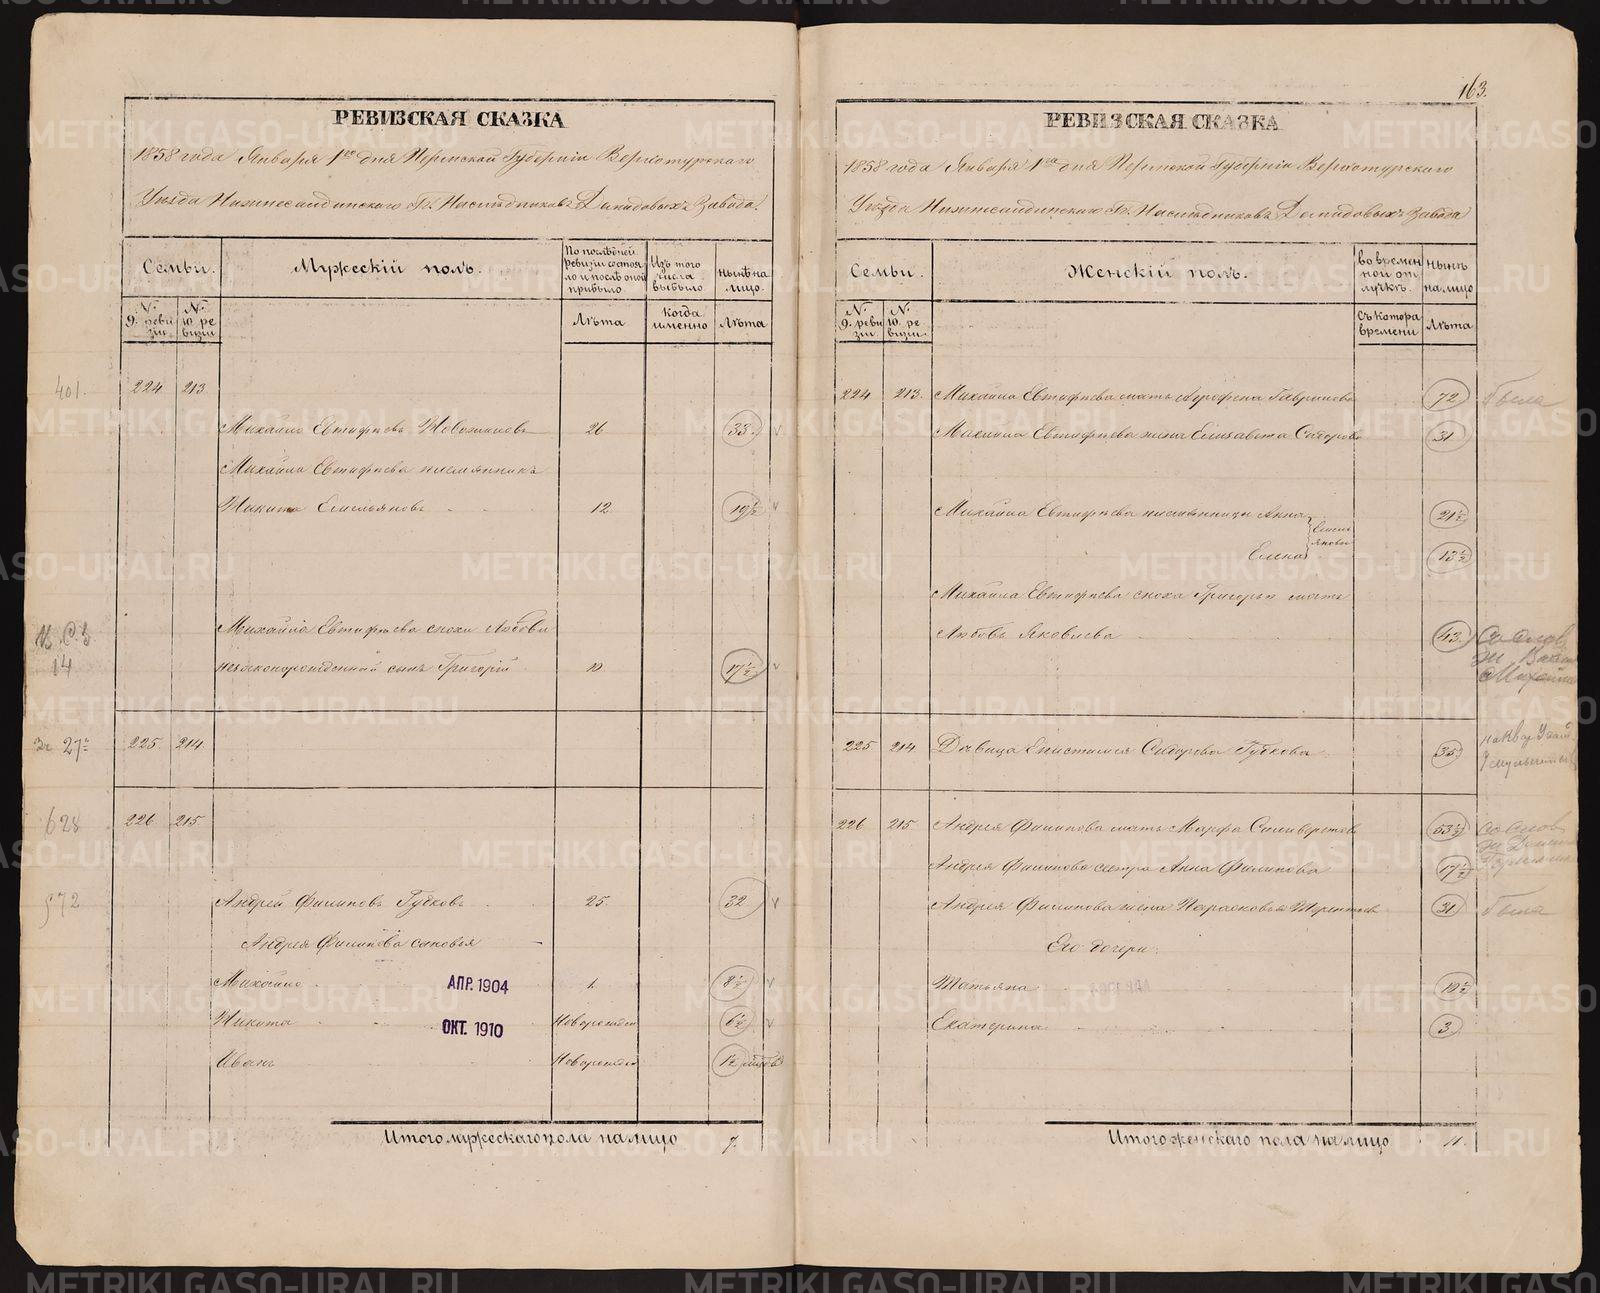 РЕВИЗСКАЯ СКАЗКА
1858 года Января 1го дня Пермской Губерніи Верхотурскаго
Уѣзда Нижнесалдинскаго Гг. Наслѣдниковъ Демидовыхъ Завода.
Семьи.
Мужескій полъ.
По послѣдней ревизіи состояло и послѣ оной прибыло.
Изъ того числа выбыло.
нынѣ на лицо.
№ 9. ревизіи.
№ 10. ревизіи.
Лѣта
когда именно
Лѣта
401.
224 213
Михайло Евтифѣевъ 26 33
Михайла Евтифѣева племянникъ
Никита Емельяновъ 12 19½
Михайла Евтифѣева снохи Любови
14
незаконорожденный сынъ Григорій 10 17½
27 225. 214.
628 226. 215.
572
Андрей Филиповъ Губковъ 25. 32
Андрея Филипова сыновья
Михайло АПР. 1904 1. 8½
Никита ОКТ. 1910 Новорожден 6½
Иванъ Новорожден 1½
Итого мужескаго пола на лицо 7.
163.
РЕВИЗСКАЯ СКАЗКА
1858 года Января 1го дня Пермской Губерніи Верхотурскаго
Уѣзда Нижнесалдинскаго Гг. Наслѣдниковъ Демидовыхъ Завода
Семьи.
Женскій полъ.
во временной отлучкѣ.
нынѣ на лицо
№ 9. ревизіи.
№ 10. ревизіи.
Съ котора времени
Лѣта
224 213. Михайла Евтифѣева мать 72 была
Михайла Евтифѣева жена Елизавета Сидорова 31
Михайла Евтифѣева племянницы Анна 21½
Емельяновы
Елена 13½
Михайла Евтифѣева сноха Григорья мать
Любовь Яковлева 43.
225 214 Дѣвица Епистимея Сидорова Губкова 35
226 215 Андрея Филипова мать Марфа 53½
Андрея Филипова сестра Анна Филипова 17½
Андрея Филипова жена Парасковья 31 была
Его дочери:
Татьяна 10½
Екатерина 3.
Итого женскаго пола на лицо 11.
METRIKI.GASO-URAL.RU